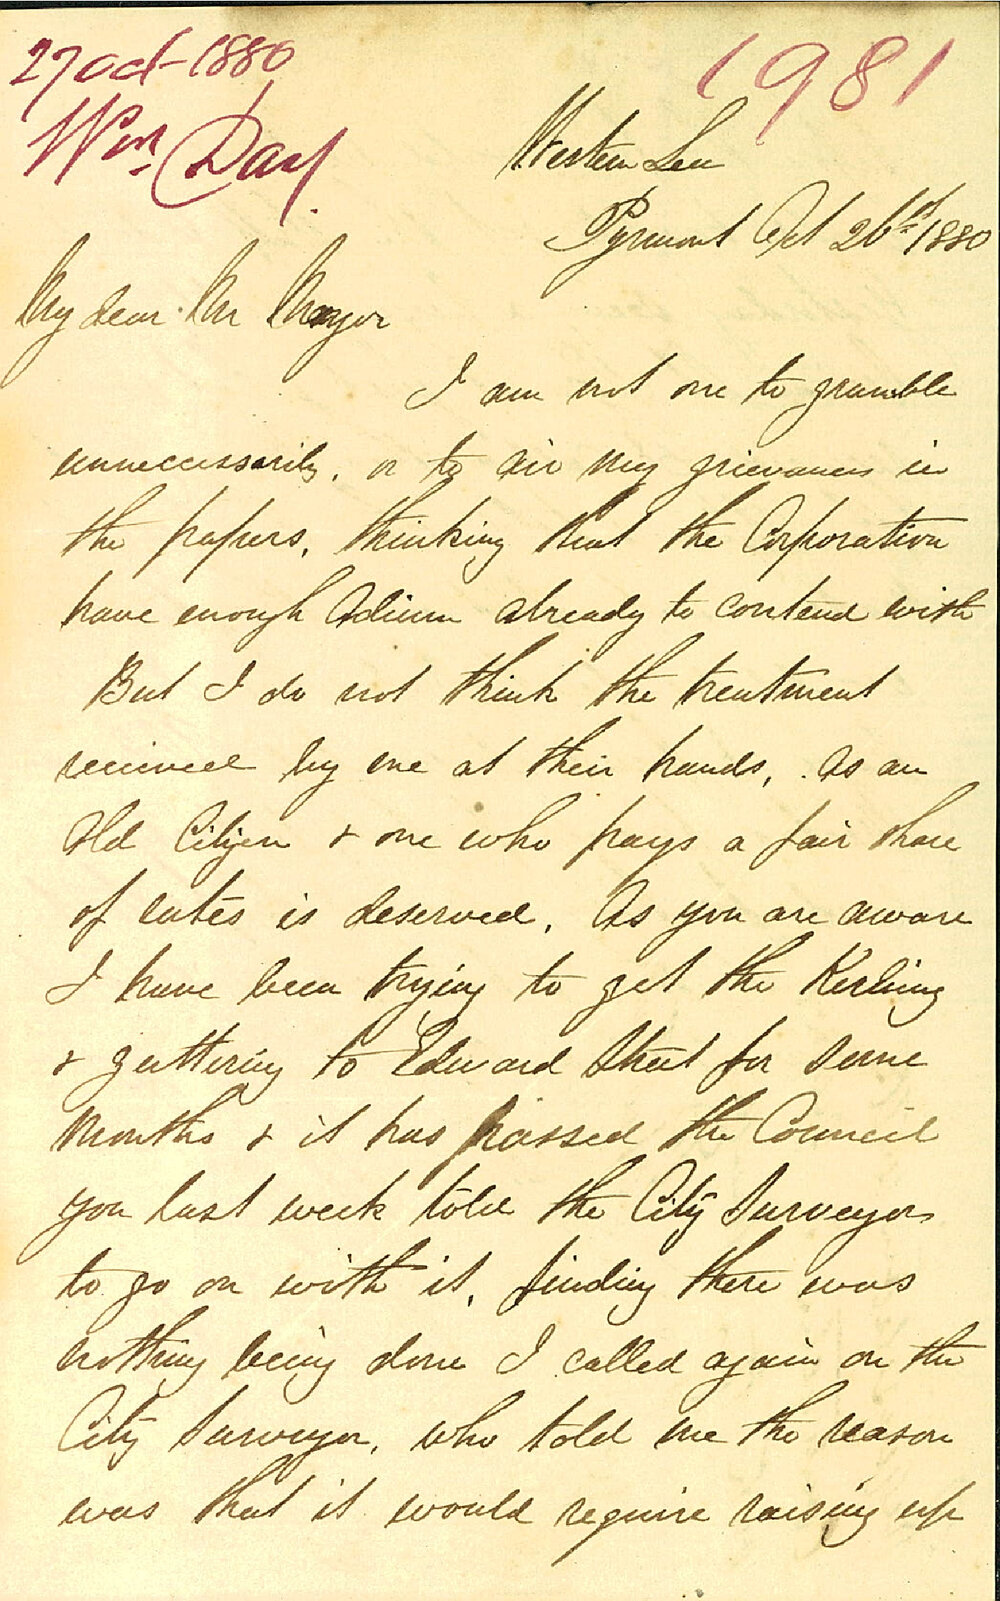 27 Oct - 1880
1981
Wm Day.
Western Lea
Pyrmont Oct 26th 1880
My dear Mr Mayor
I am not one to grumble
unneccessarily, or to air my grievances in
the papers, thinking that the Corporation
have enough Odium already to contend with
But I do not think the treatment
received by me at their hands, as an
Old Citizen & one who pays a fair share
of rates is deserved, As you are aware
I have been trying to get the Kerbing
& guttering to Edward Street for some
months & it has passed the Council
you last week told the City Surveyor
to go on with it, finding there was
nothing being done I called again on the
City Surveyor, who told me the reason
was that it would require raising up